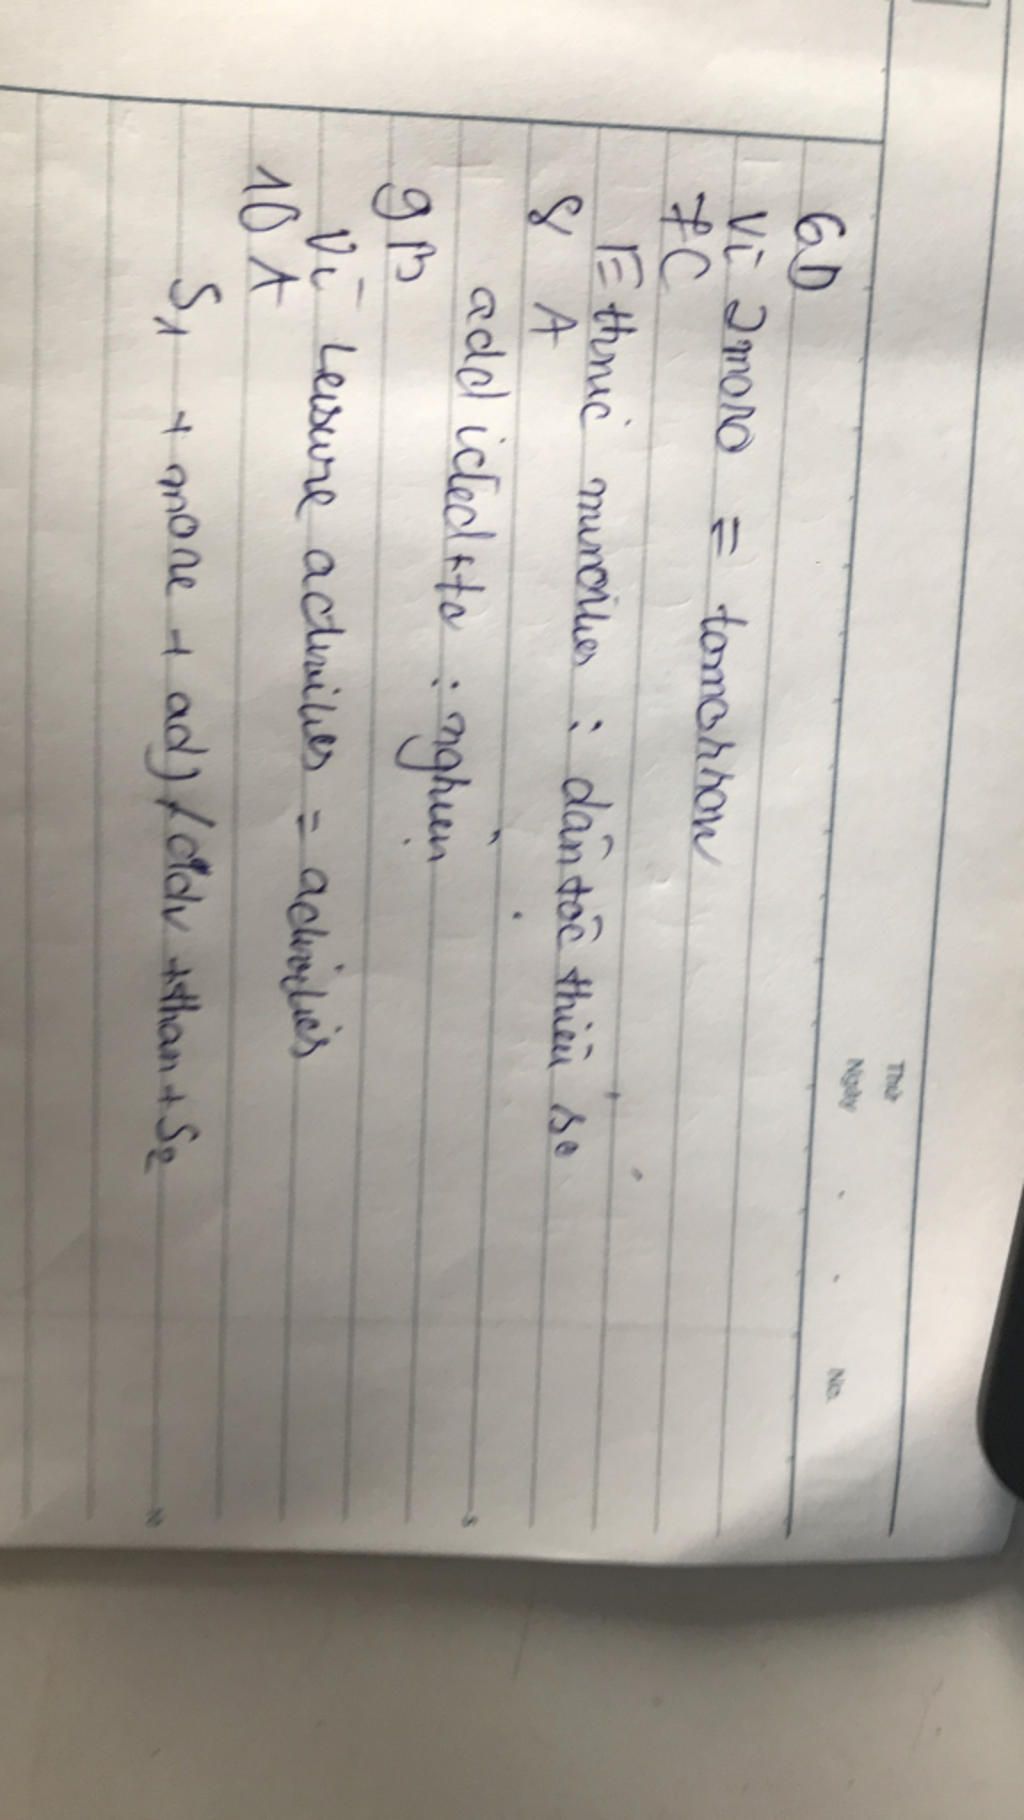 Thứ
Ngày . . No.
6D
Vì 2moro = tomorrow
7C
Ethnic minorities : dân tộc thiểu số
8 A
addicted + to : nghiện
9 B
Vì Leisure activities = activities
10 A
S1 + more + adj / adv + than + S2